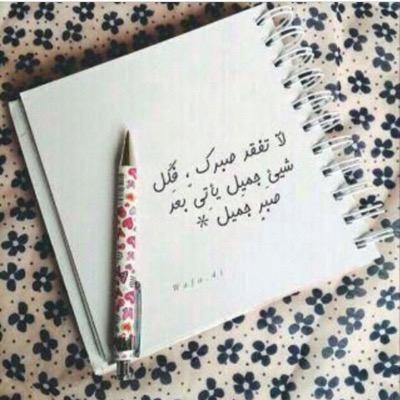 لآ تفقد صبرك ، فكل
شيئ جميل يأتي بعد
صبر جميل *
Wafo.41